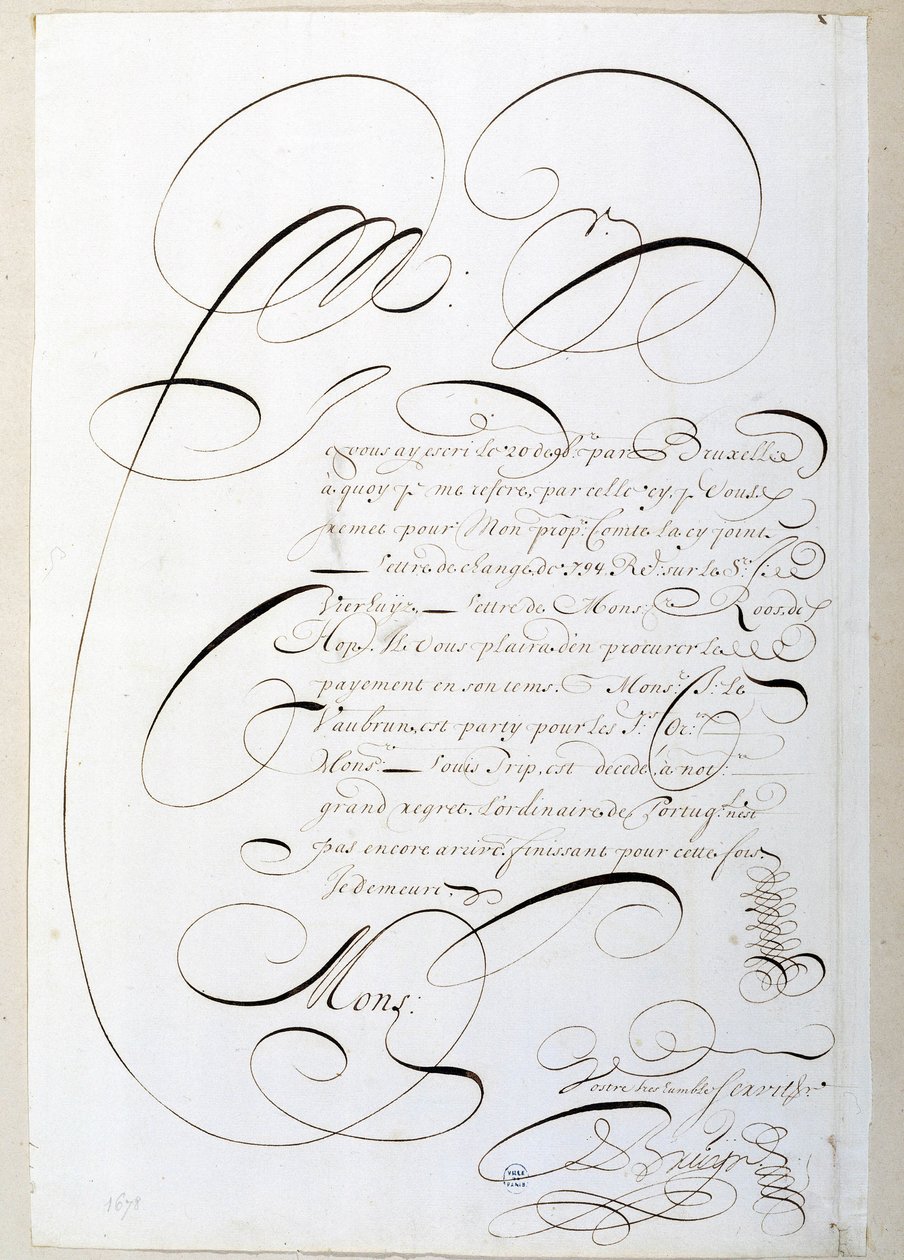 M.r
Je vous ay escri le 20 de 9b.re par Bruxelle
à quoy je me refere, par celle cy, je vous
remet pour Mon prop.e Comte la cy joint
— Lettre de change de 794. R.d sur le S.r
Vierhuÿz, — Lettre de Mons.r Roos, de
Hop. Il vous plaira d'en procurer le
payement en son tems. Mons.r J: Le
Vaubrun, est party pour les J.s Or:
Mons.r — Louis Trip, est decedé, à not.re
grand regret. L'ordinaire de Portug.l n'est
pas encore arrivé. finissant pour cette fois.
Je demeure
Mons:r
Vostre tres humble Servite.r
D Bruÿn.
VILLE DE PARIS
1678